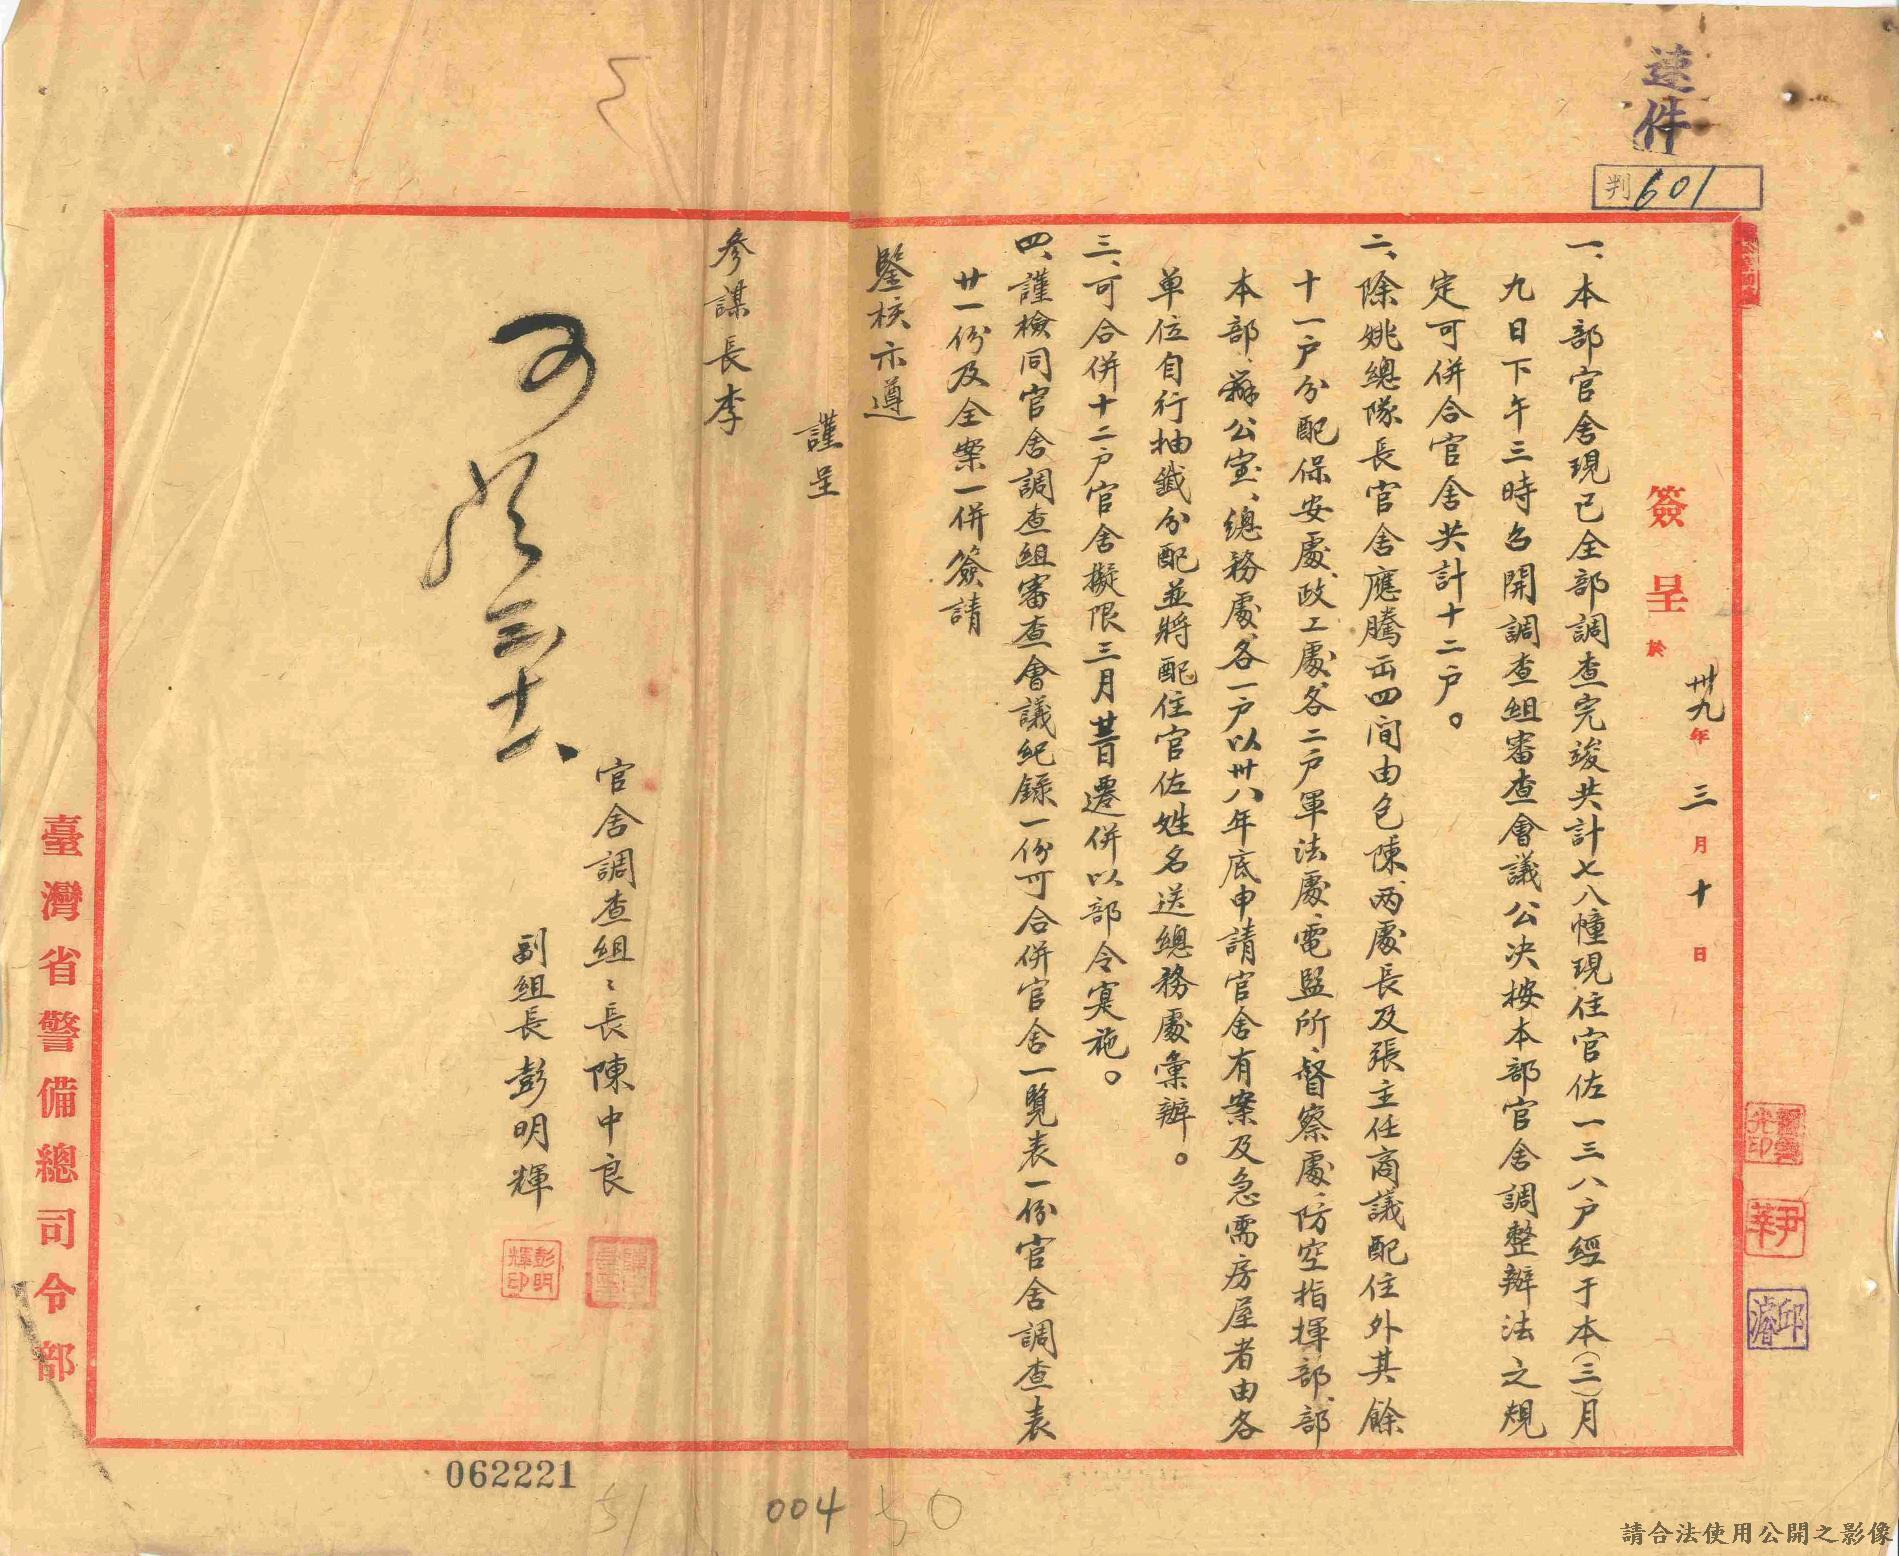 速件
判601
簽呈 於 卅九年三月十日
一、本部官舍現已全部調查完竣共計七八幢現住官佐一三八户經于本(三)月
九日下午三時召開調查組審查會議公决按本部官舍調整辦法之規
定可併合官舍共計十二户。
二、除姚總隊長官舍應騰出四间由包陳两處長及張主任商議配住外其餘
十一户分配保安處、政工處、各二户軍法處、電監所、督察處、防空指揮部、部
本部、辦公室、總務處、各一户以卅八年底申請官舍有案及急需房屋者由各
单位自行抽籤分配並將配住官佐姓名送總務處彙辦。
三、可合併十二户官舍擬限三月廿日遷併以部令寔施。
四、謹檢同官舍調查組審查會議紀錄一份可合併官舍一覽表一份官舍調查表
廿一份及全案一併簽請
鑒核示遵
謹呈
參謀長李
可
三十一
官舍調查組:長陳中良
副組長彭明輝
彭明輝印
臺灣省警備總司令部
尹莘
邱濬
062221
51
004
50
請合法使用公開之影像